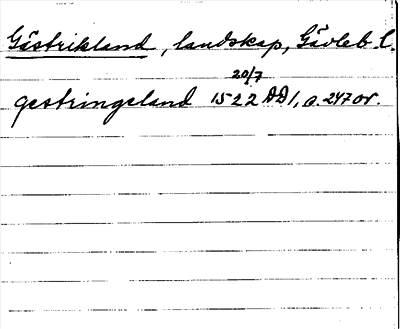 Gästrikland, landskap, Gävleb. l.
20/7
gestringeland 1522 DD1, s. 247 or.